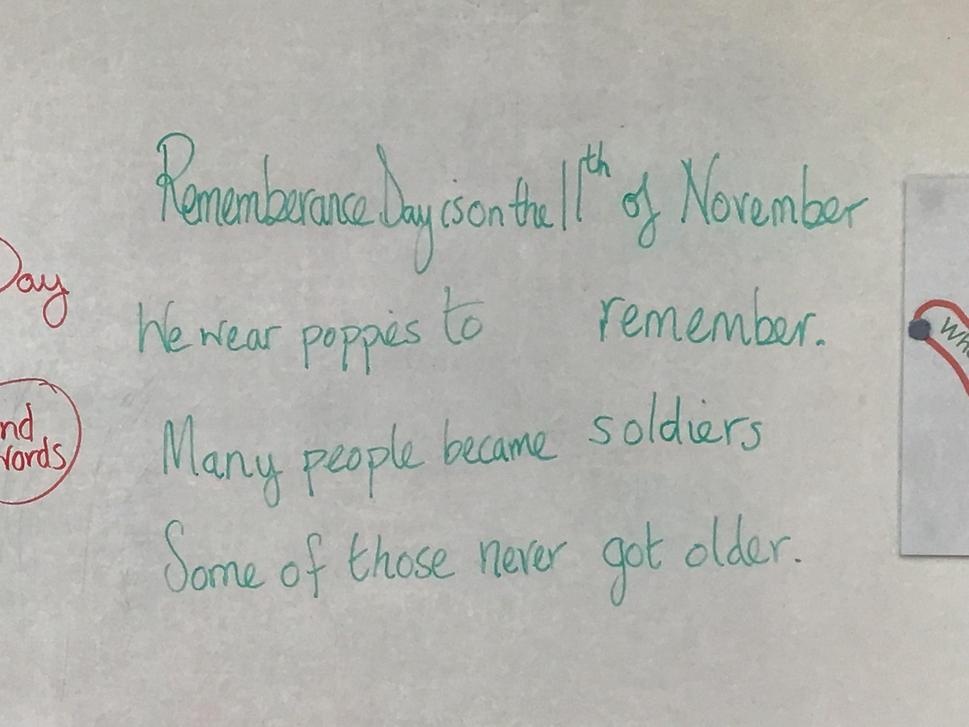 Rememberance Day is on the 11th of November
We wear poppies to remember.
Many people became soldiers
Some of those never got older.
Day
nd
words
Wh